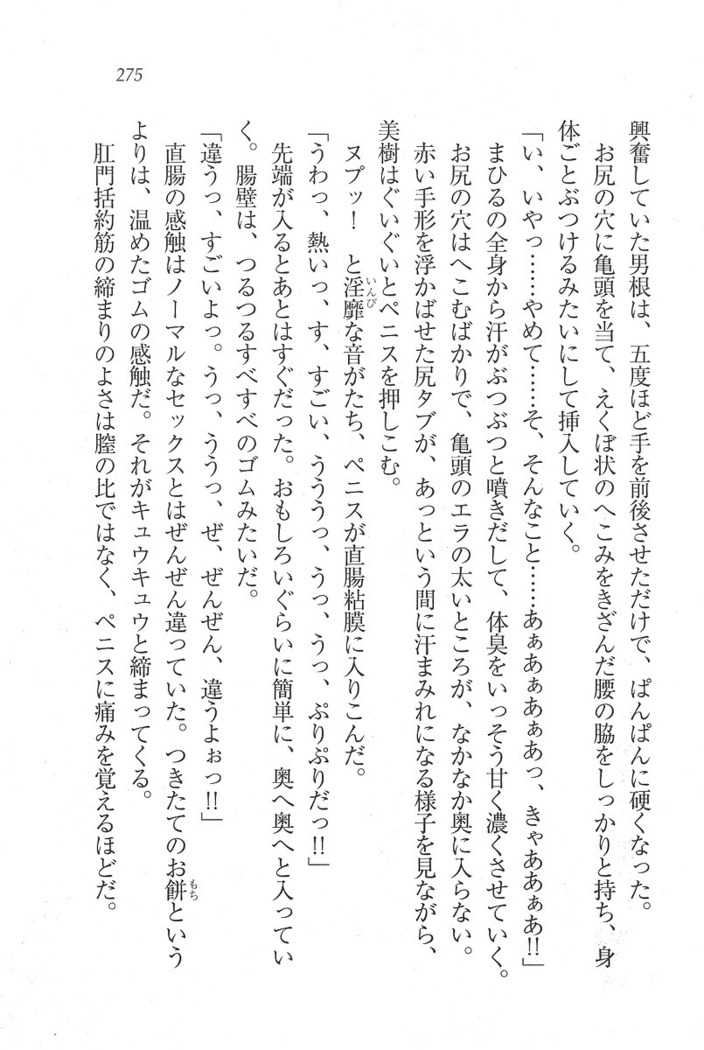 275
興奮していた男根は、五度ほど手を前後させただけで、ぱんぱんに硬くなった。
お尻の穴に亀頭を当て、えくぼ状のへこみをきざんだ腰の脇をしっかりと持ち、身
体ごとぶつけるみたいにして挿入していく。
「い、いやっ……やめて……そ、そんなこと……あぁあぁあぁあっ、きゃああぁあ!!」
まひるの全身から汗がぶつぶつと噴きだして、体臭をいっそう甘く濃くさせていく。
お尻の穴はへこむばかりで、亀頭のエラの太いところが、なかなか奥に入らない。
赤い手形を浮かばせた尻タブが、あっという間に汗まみれになる様子を見ながら、
美樹はぐいぐいとペニスを押しこむ。
ヌプッ！　と淫靡な音がたち、ペニスが直腸粘膜に入りこんだ。
いんび
「うわっ、熱いっ、す、すごい、うううっ、うっ、うっ、ぷりぷりだっ!!」
先端が入るとあとはすぐだった。おもしろいぐらいに簡単に、奥へ奥へと入ってい
く。腸壁は、つるつるすべすべのゴムみたいだ。
「違うっ、すごいよっ。うっ、ううっ、ぜ、ぜんぜん、違うよぉっ!!」
直腸の感触はノーマルなセックスとはぜんぜん違っていた。つきたてのお餅という
もち
よりは、温めたゴムの感触だ。それがキュウキュウと締まってくる。
肛門括約筋の締まりのよさは膣の比ではなく、ペニスに痛みを覚えるほどだ。